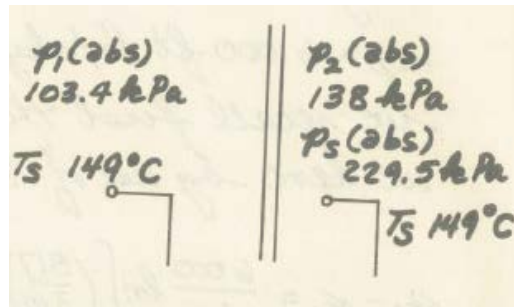 p₁(abs)
103.4 kPa
Ts 149°C
p₂(abs)
138 kPa
ps(abs)
229.5 kPa
Ts 149°C